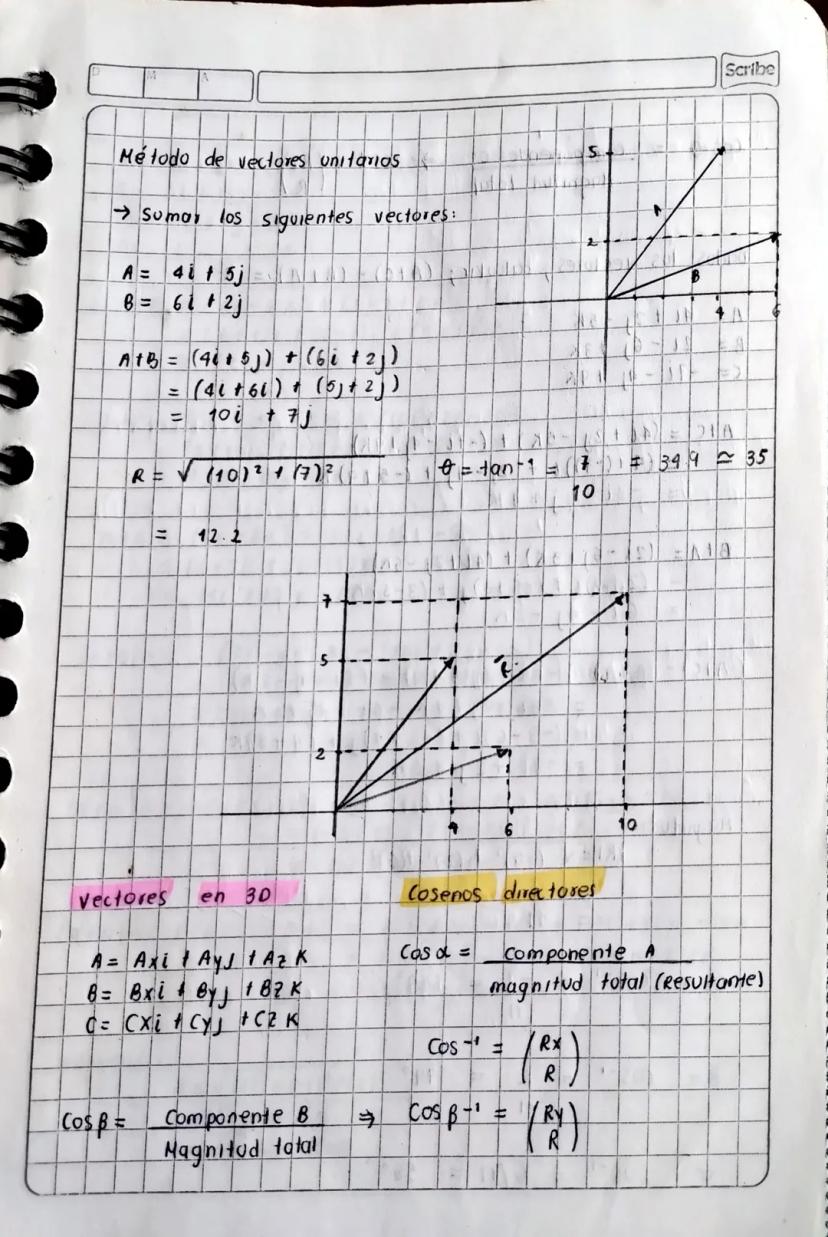 D M A
Scribe
Método de vectores unitarios
→ Sumar los siguientes vectores:
A = 4i + 5j
B = 6i + 2j
5
2
A
B
4 6
A+B = (4i+5j) + (6i + 2j)
= (4i+6i) + (5j+2j)
= 10i + 7j
R = √(10)² + (7)²
θ = tan⁻¹ = (7/10) = 34.9 ≃ 35
= 12.2
7
5
2
R
4 6 10
Vectores en 3D
A = Axi + Ayj + Azk
B = Bxi + Byj + Bzk
C = Cxi + Cyj + Czk
Cosenos directores
Cos α = componente A
magnitud total (Resultante)
Cos⁻¹ = (Rx
R)
Cos β = Componente B
Magnitud total
⇒ Cos β⁻¹ = (Ry
R)